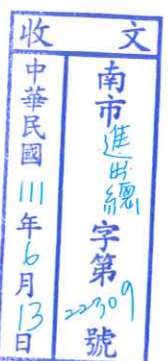 收文
南市進出總字第22309號
中華民國111年6月13日